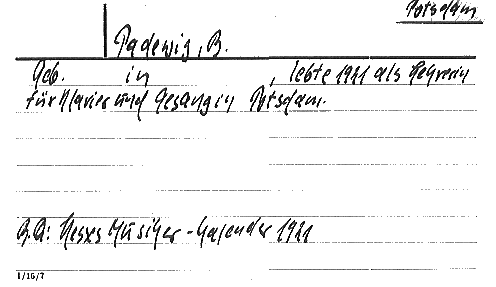 Potsdam
Padewig, B.
Geb. in , lebte 1921 als Lehrerin
für Klavier und Gesang in Potsdam.
B.A: Hesses Musiker-Kalender 1921
1/16/7